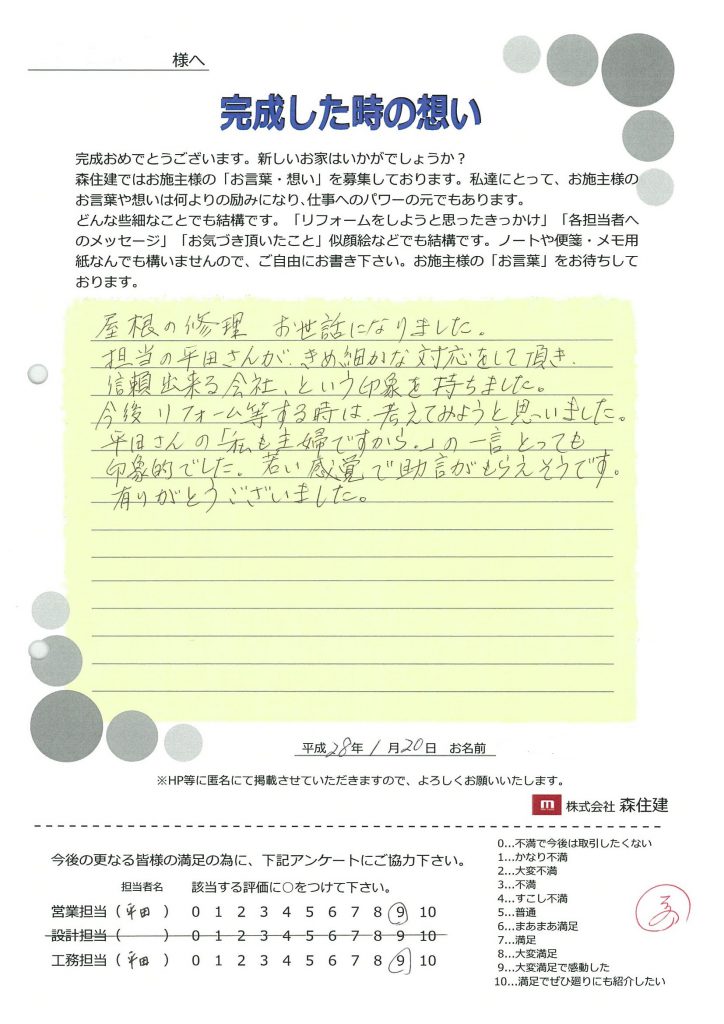 様へ
完成した時の想い
完成おめでとうございます。新しいお家はいかがでしょうか？
森住建ではお施主様の「お言葉・想い」を募集しております。私達にとって、お施主様の
お言葉や想いは何よりの励みになり、仕事へのパワーの元でもあります。
どんな些細なことでも結構です。「リフォームをしようと思ったきっかけ」「各担当者へ
のメッセージ」「お気づき頂いたこと」似顔絵などでも結構です。ノートや便箋・メモ用
紙なんでも構いませんので、ご自由にお書き下さい。お施主様の「お言葉」をお待ちして
おります。
屋根の修理 お世話になりました。
担当の平田さんが、きめ細かな対応をして頂き、
信頼出来る会社、という印象を持ちました。
今後リフォーム等する時は、考えてみようと思いました。
平田さんの「私も主婦ですから。」の一言とっても
印象的でした。若い感覚で助言がもらえそうです。
有りがとうございました。
平成28年1月20日 お名前
※HP等に匿名にて掲載させていただきますので、よろしくお願いいたします。
m 株式会社 森住建
今後の更なる皆様の満足の為に、下記アンケートにご協力下さい。
担当者名 該当する評価に○をつけて下さい。
営業担当（平田）0 1 2 3 4 5 6 7 8 9 10
設計担当（ ）0 1 2 3 4 5 6 7 8 9 10
工務担当（平田）0 1 2 3 4 5 6 7 8 9 10
0…不満で今後は取引したくない
1…かなり不満
2…大変不満
3…不満
4…すこし不満
5…普通
6…まあまあ満足
7…満足
8…大変満足
9…大変満足で感動した
10…満足でぜひ廻りにも紹介したい